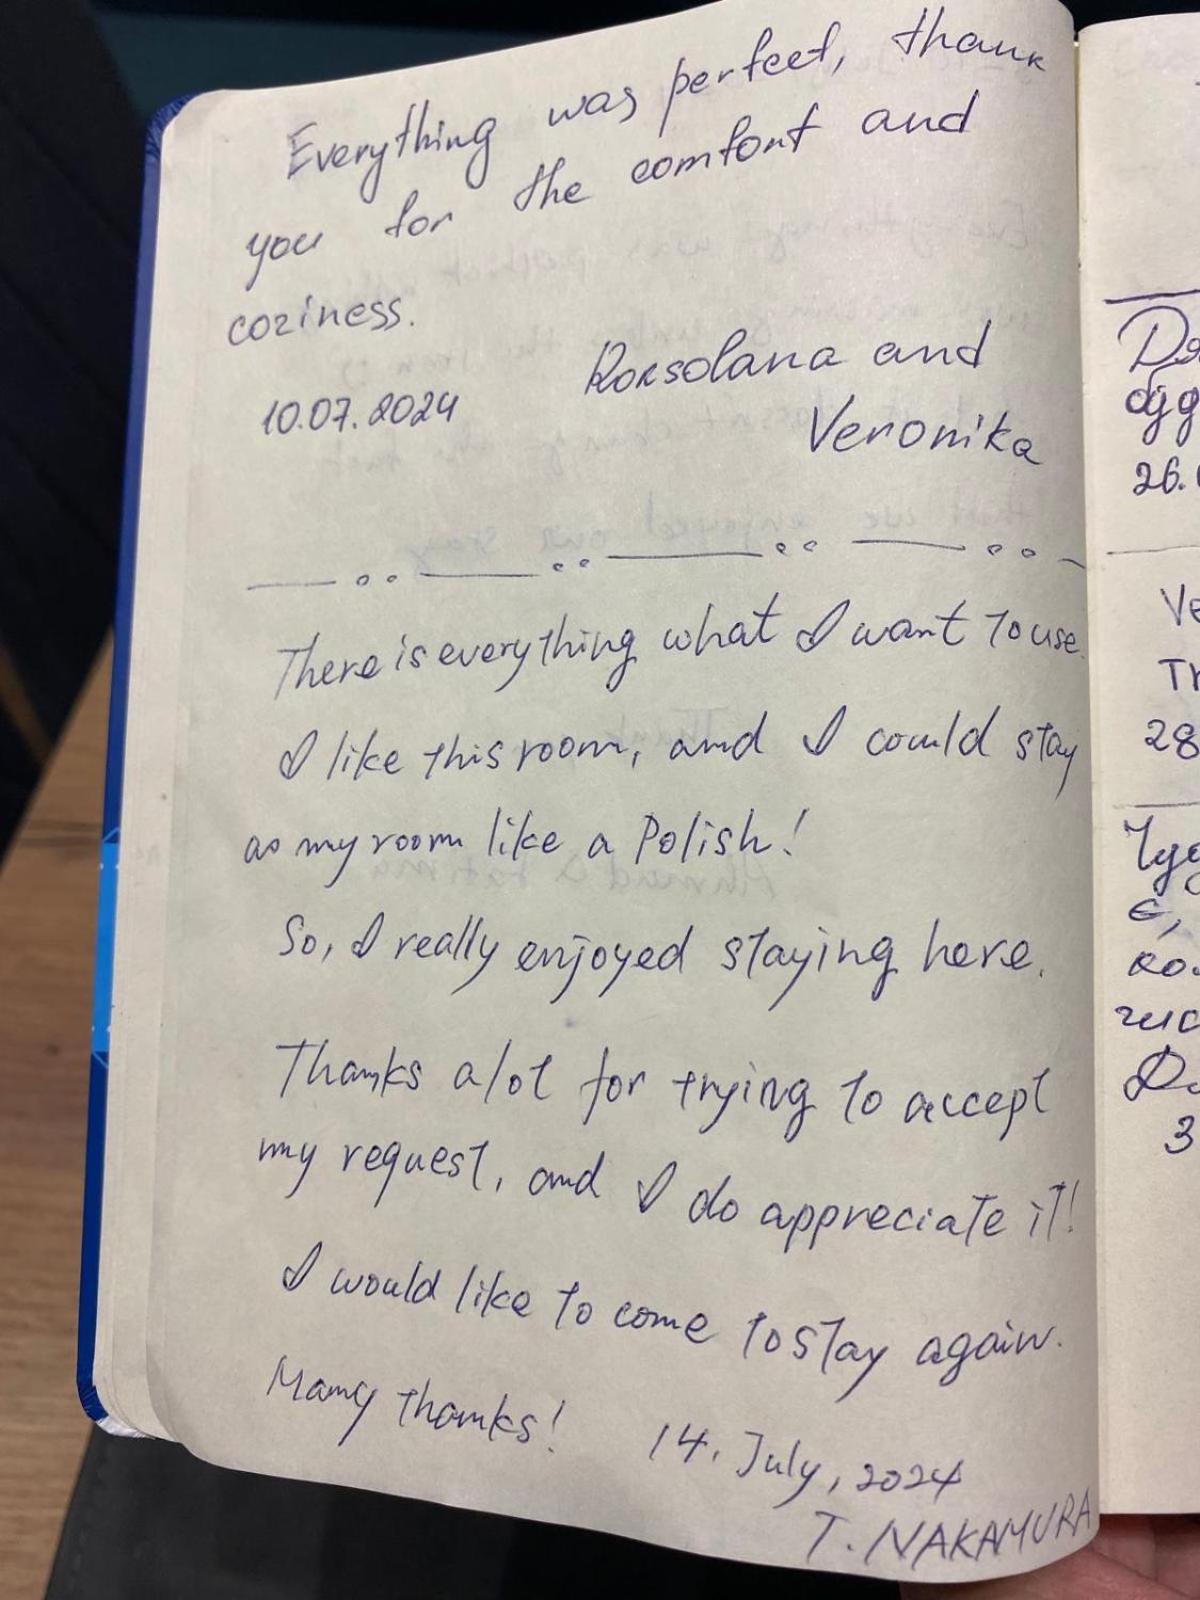 Everything was perfect, thank
you for the comfort and
coziness.
10.07.2024
Roksolana and
Veronika
There is everything what I want to use.
I like this room, and I could stay
as my room like a Polish!
So, I really enjoyed staying here.
Thanks alot for trying to accept
my request, and I do appreciate it!
I would like to come to stay again.
Many thanks!
14. July, 2024
T. NAKAMURA
26.
28
3